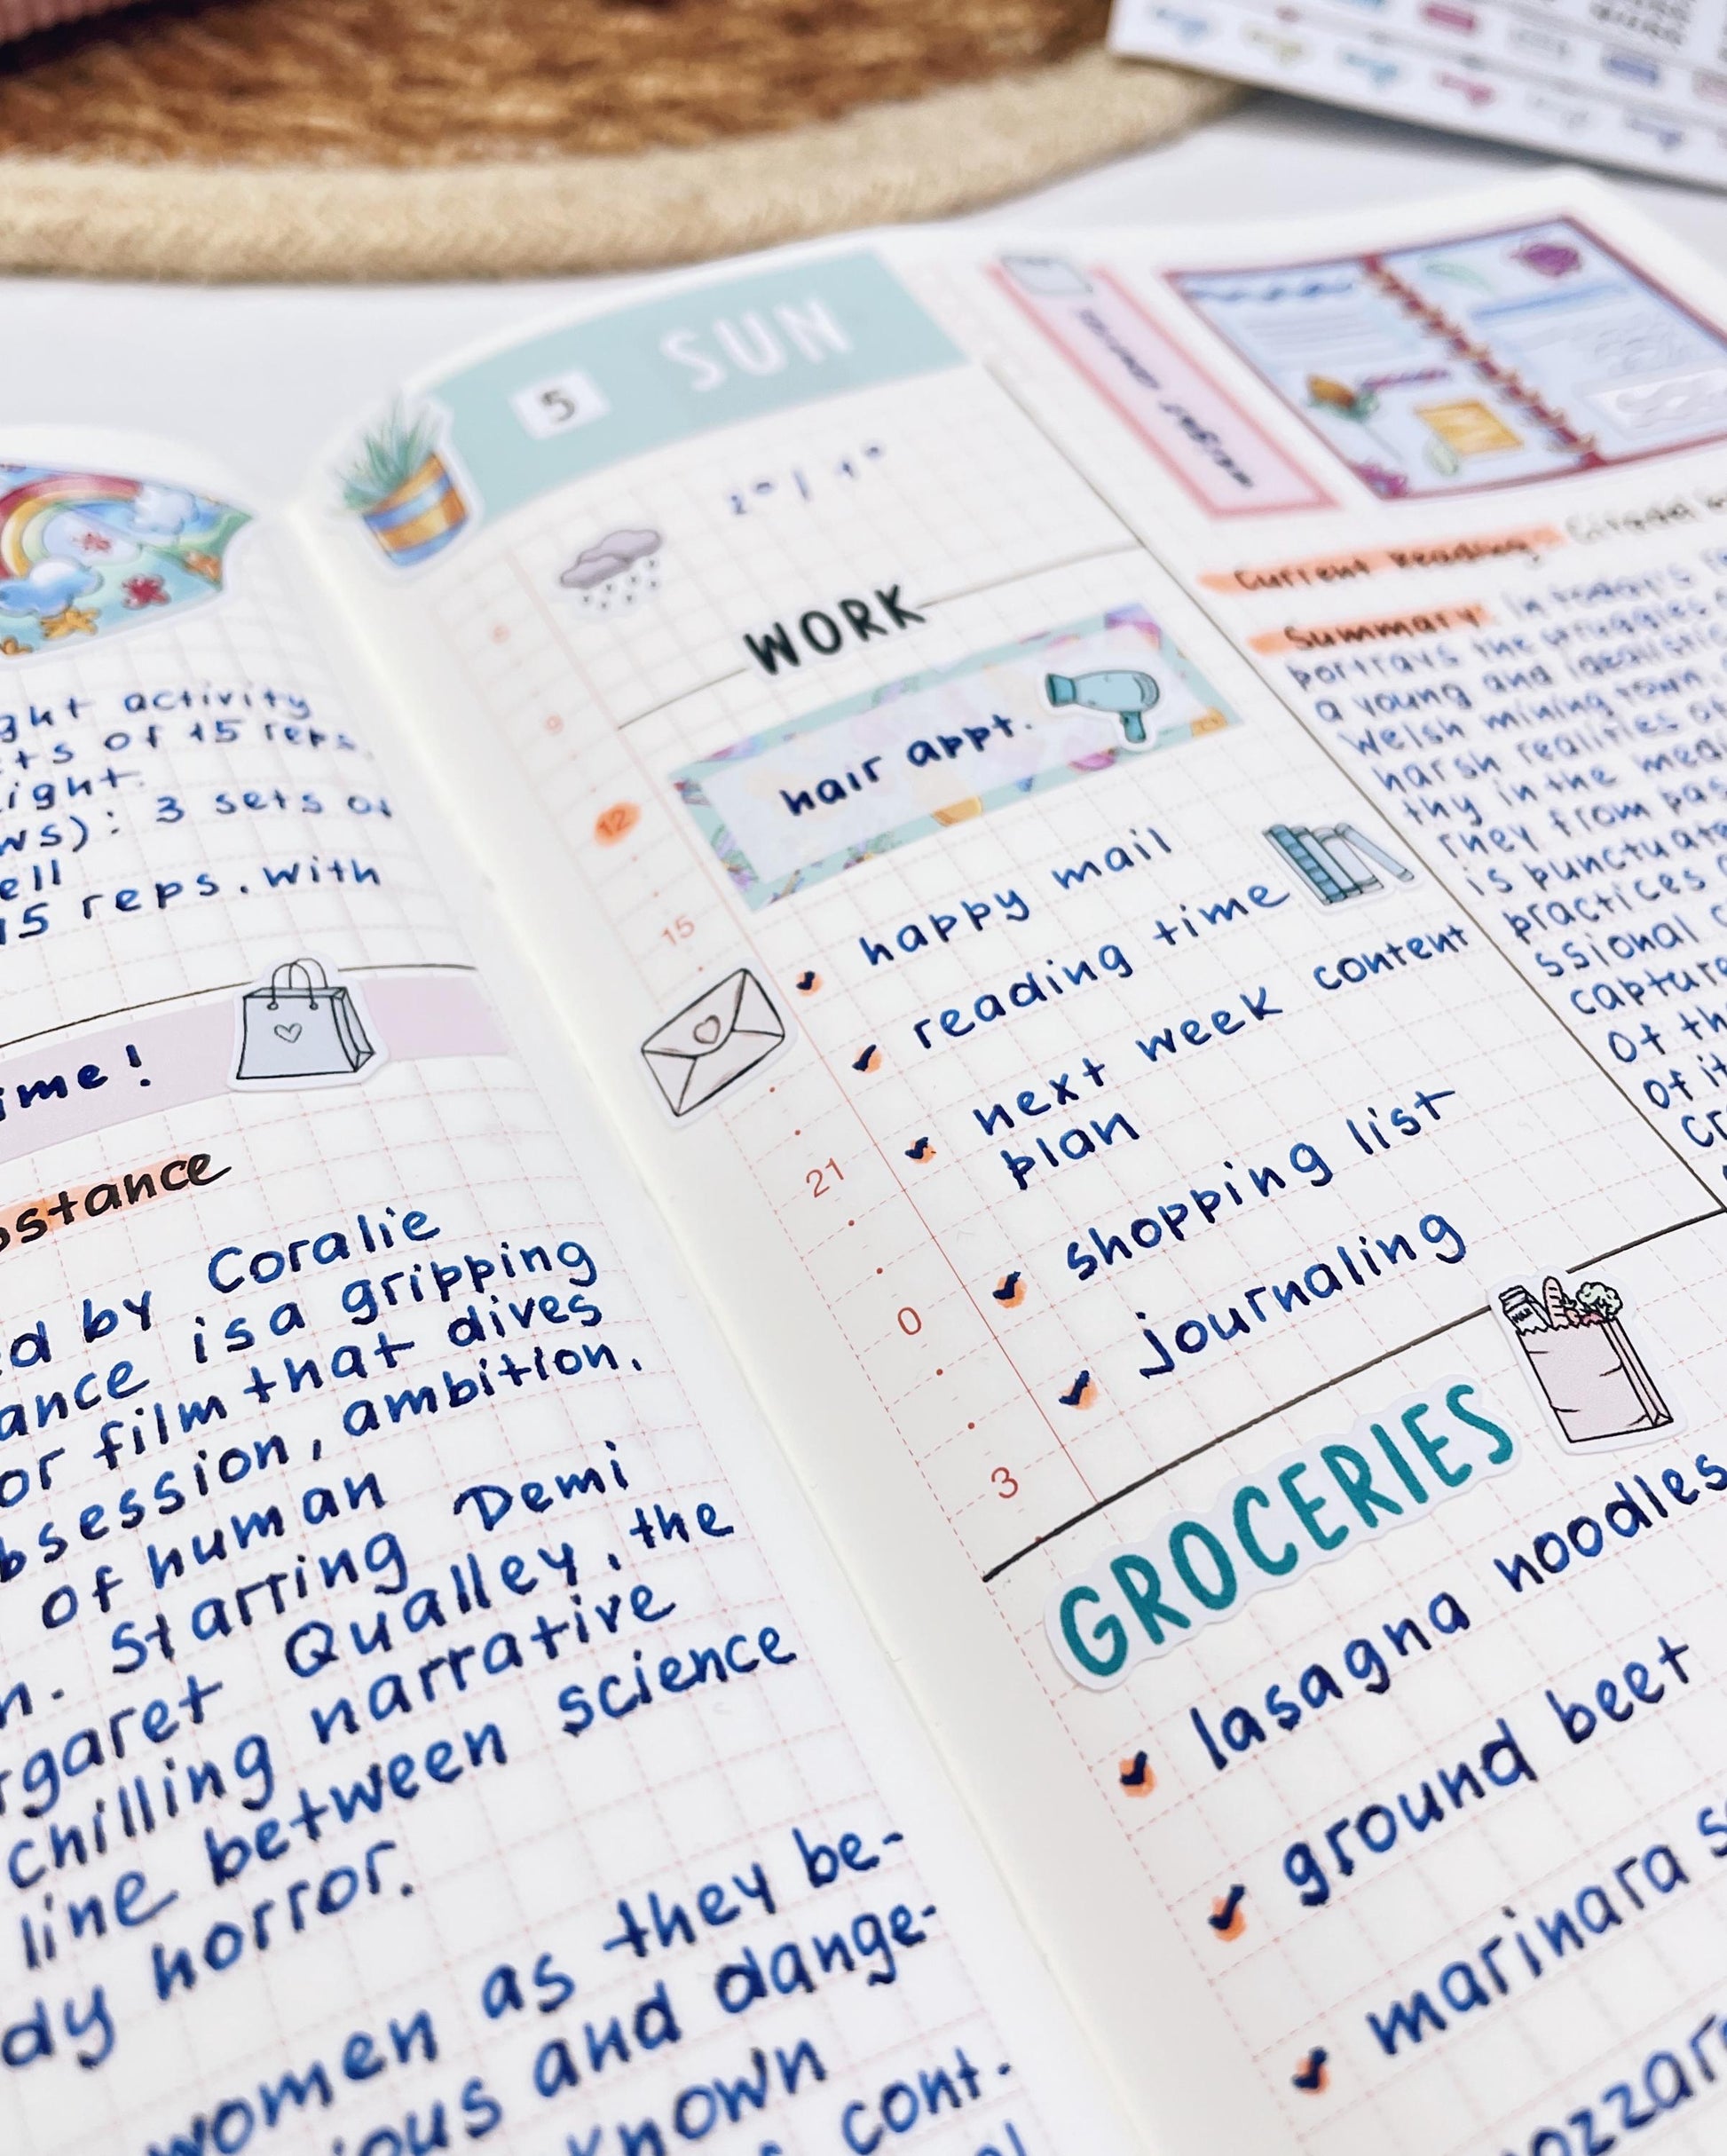 ght activity
ts of 15 reps
ight.
ws): 3 sets of
ell
15 reps. With
ime!
bstance
ed by Coralie
ance is a gripping
or film that dives
bsession, ambition,
of human
n. Starring Demi
rgaret Qualley, the
chilling narrative
line between science
dy horror.
women as they be-
ious and dange-
known
cont.
5 SUN
WORK
hair appt.
happy mail
reading time
next week content
plan
shopping list
journaling
6
9
12
15
21
0
3
GROCERIES
lasagna noodles
ground beet
marinara s
ozzar
Current Reading: Citadel
Summary: In today's
portrays the struggles
a young and idealistic
Welsh mining town,
harsh realities of
thy in the medi
rney from pas
is punctuate
practices
ssional c
capture
Of th
of it
cr